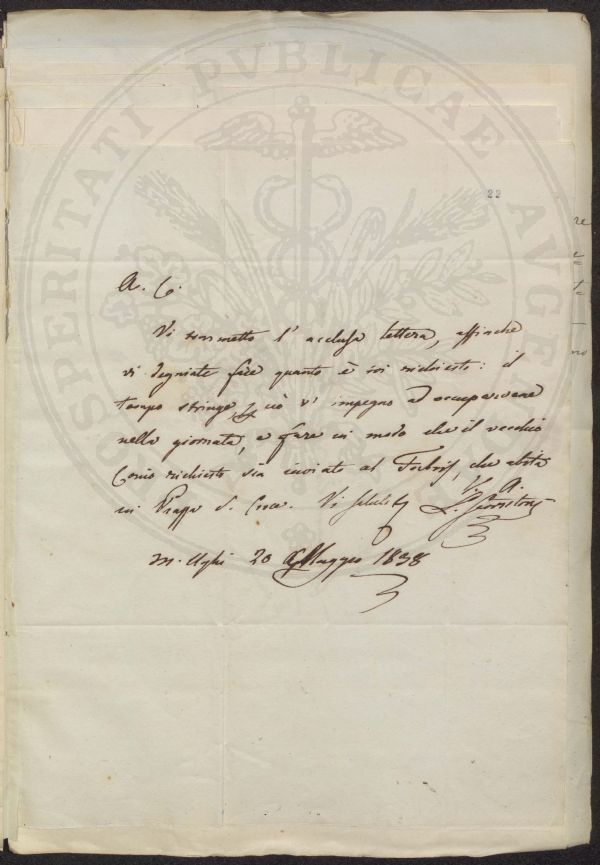 PROSPERITATI PVBLICAE AVGENDAE
22
A. C.
Vi rimetto l' acclusa lettera, affinche
vi degniate fare quanto è ivi richiesto: il
tempo stringe ciò v' impegno ad occuparvene
nella giornata, e fare in modo che il vecchio
Conio richiesto sia inviato al che abita
in Piazza S. Croce. Vi saluto
A.
20 Maggio 1838
re
no